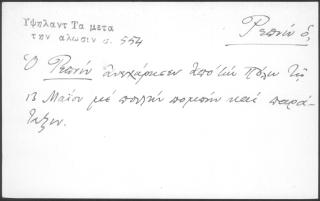 Υψηλαντ Τα μετα
την αλωσιν σ. 554
Ρεπνίν ὁ,
Ὁ Ρεπνίν ἀνεχώρησεν ἀπὸ τὴν Πόλιν τῇ
13 Μαΐου μὲ πολλὴν πομπὴν καὶ παρά-
ταξιν.